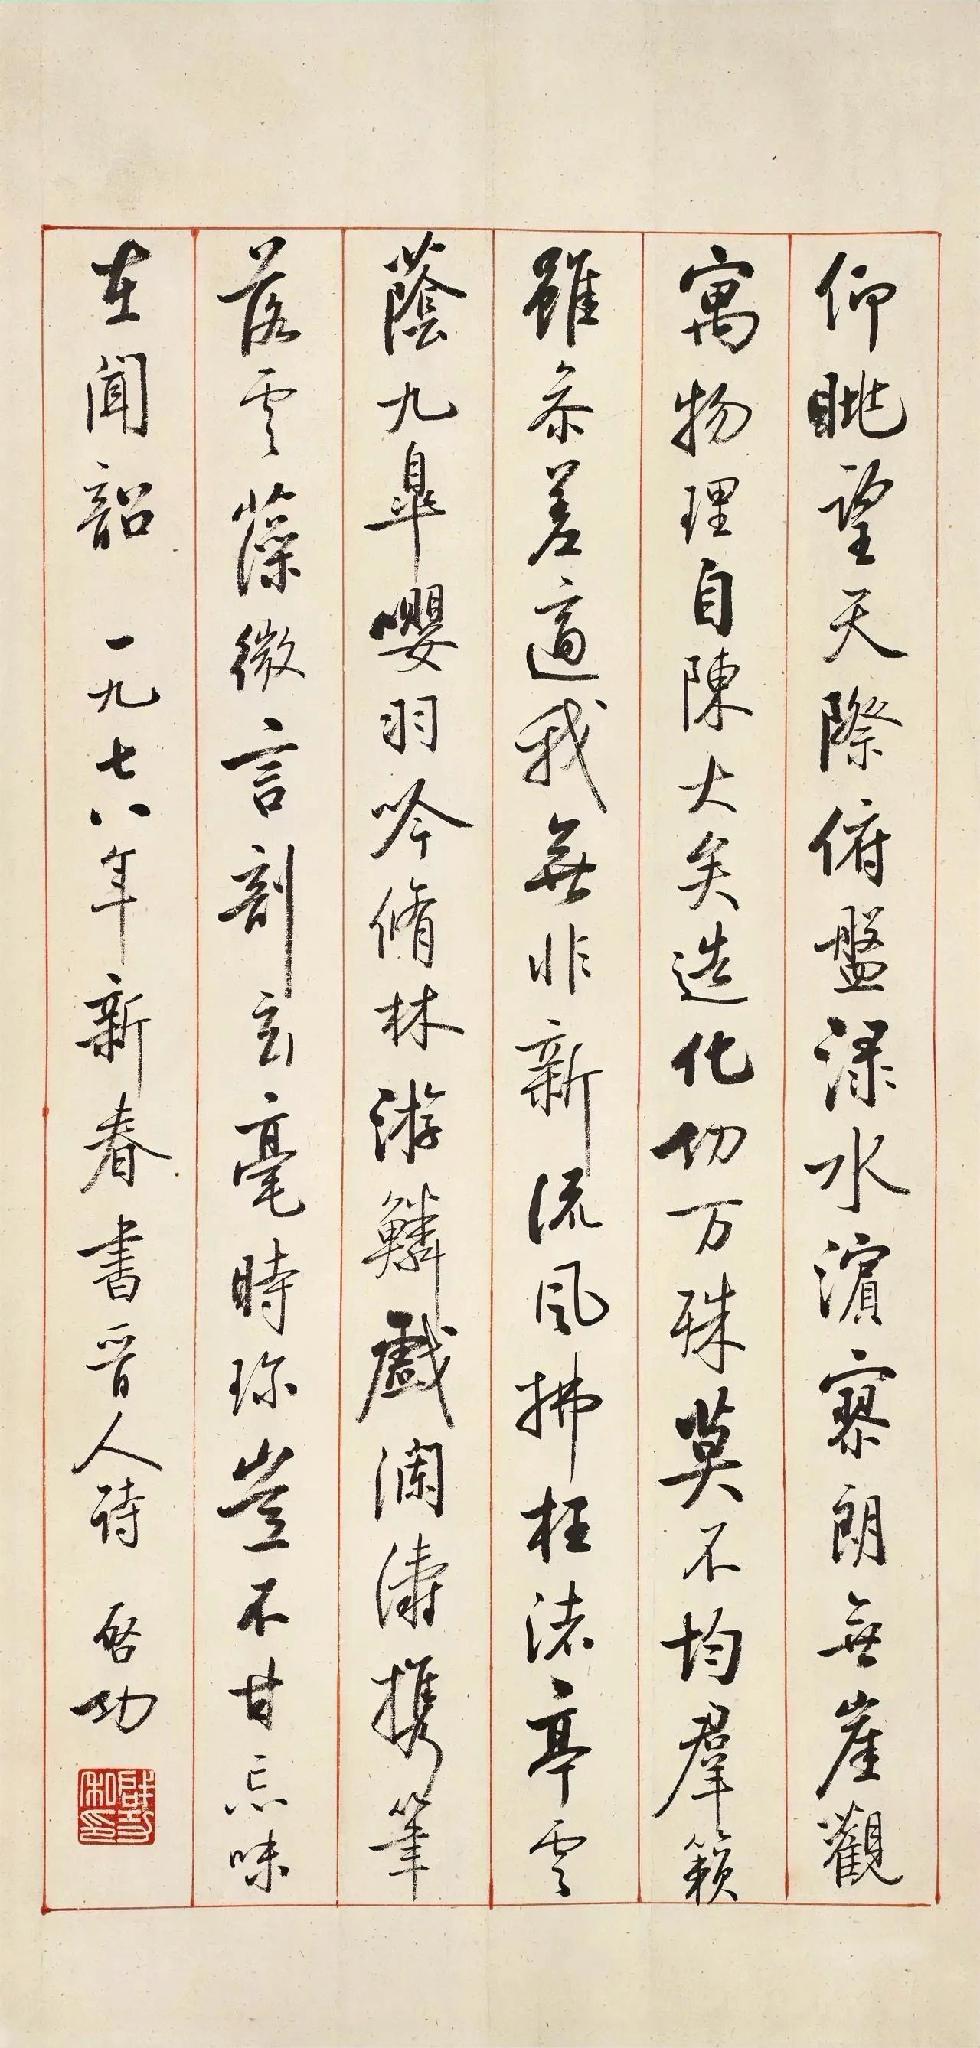 仰眺望天際俯盤淥水濱寥朗無崖觀
寓物理自陳大矣造化功万殊莫不均羣籟
雖参差適我無非新流風拂枉渚亭雲
蔭九皐嚶羽吟脩林游鱗戲瀾濤攜筆
落雲藻微言剖玄毫時珍豈不甘忘味
在聞韶 一九七八年新春書晋人詩 啓功